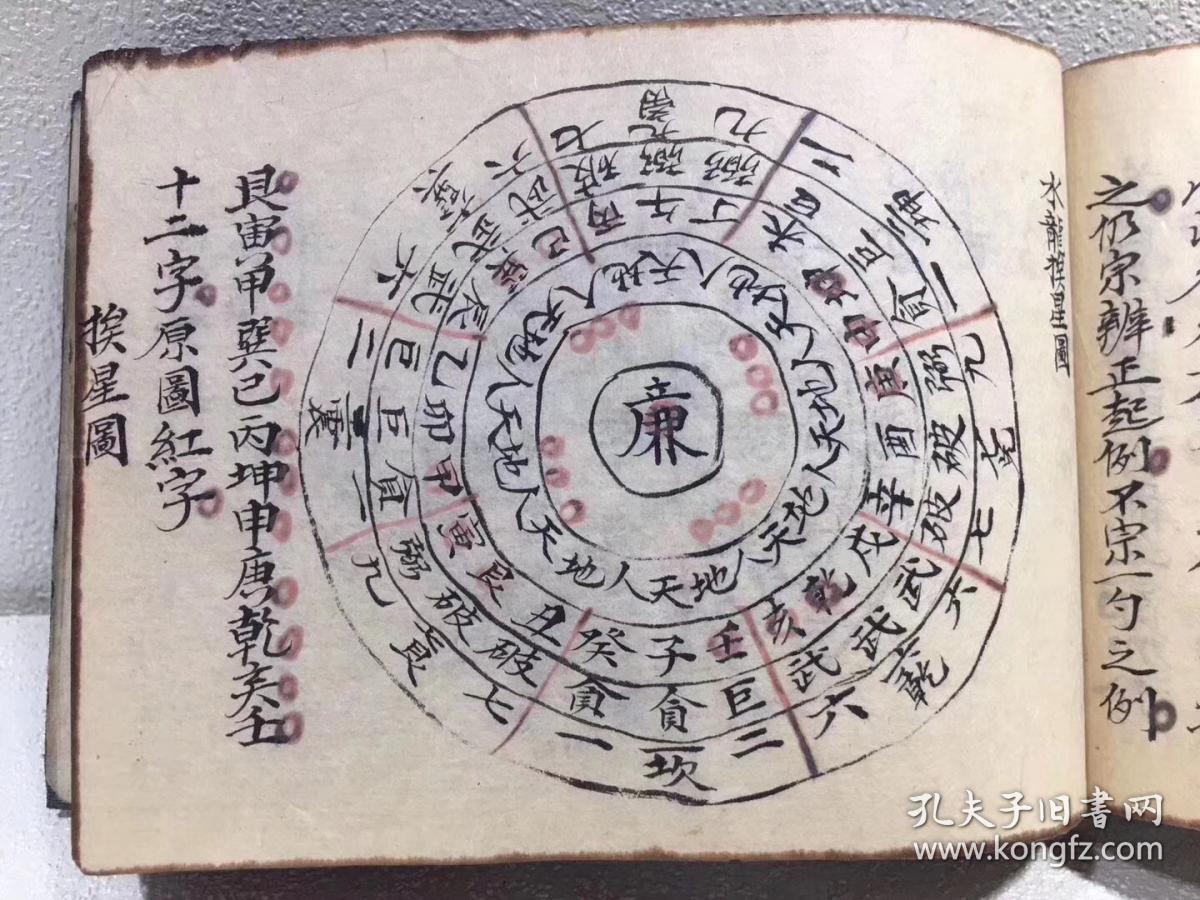 之仍宗辨正起例不宗一勺之例
水龍挨星圖
廉
天地人天地人天地人天地人天地人天地人天地人天地人
午丁未坤申庚酉辛戌乾亥壬子癸丑艮寅甲卯乙辰巽巳丙
弼弼巨巨貪弼破破武武武巨貪貪破破弼貪巨巨武武武破
九九二坤一九七七六六乾六二一坎一七艮九一震二六巽六七
艮寅甲巽巳丙坤申庚乾亥壬
十二字原圖紅字
挨星圖
孔夫子旧书网
www.kongfz.com